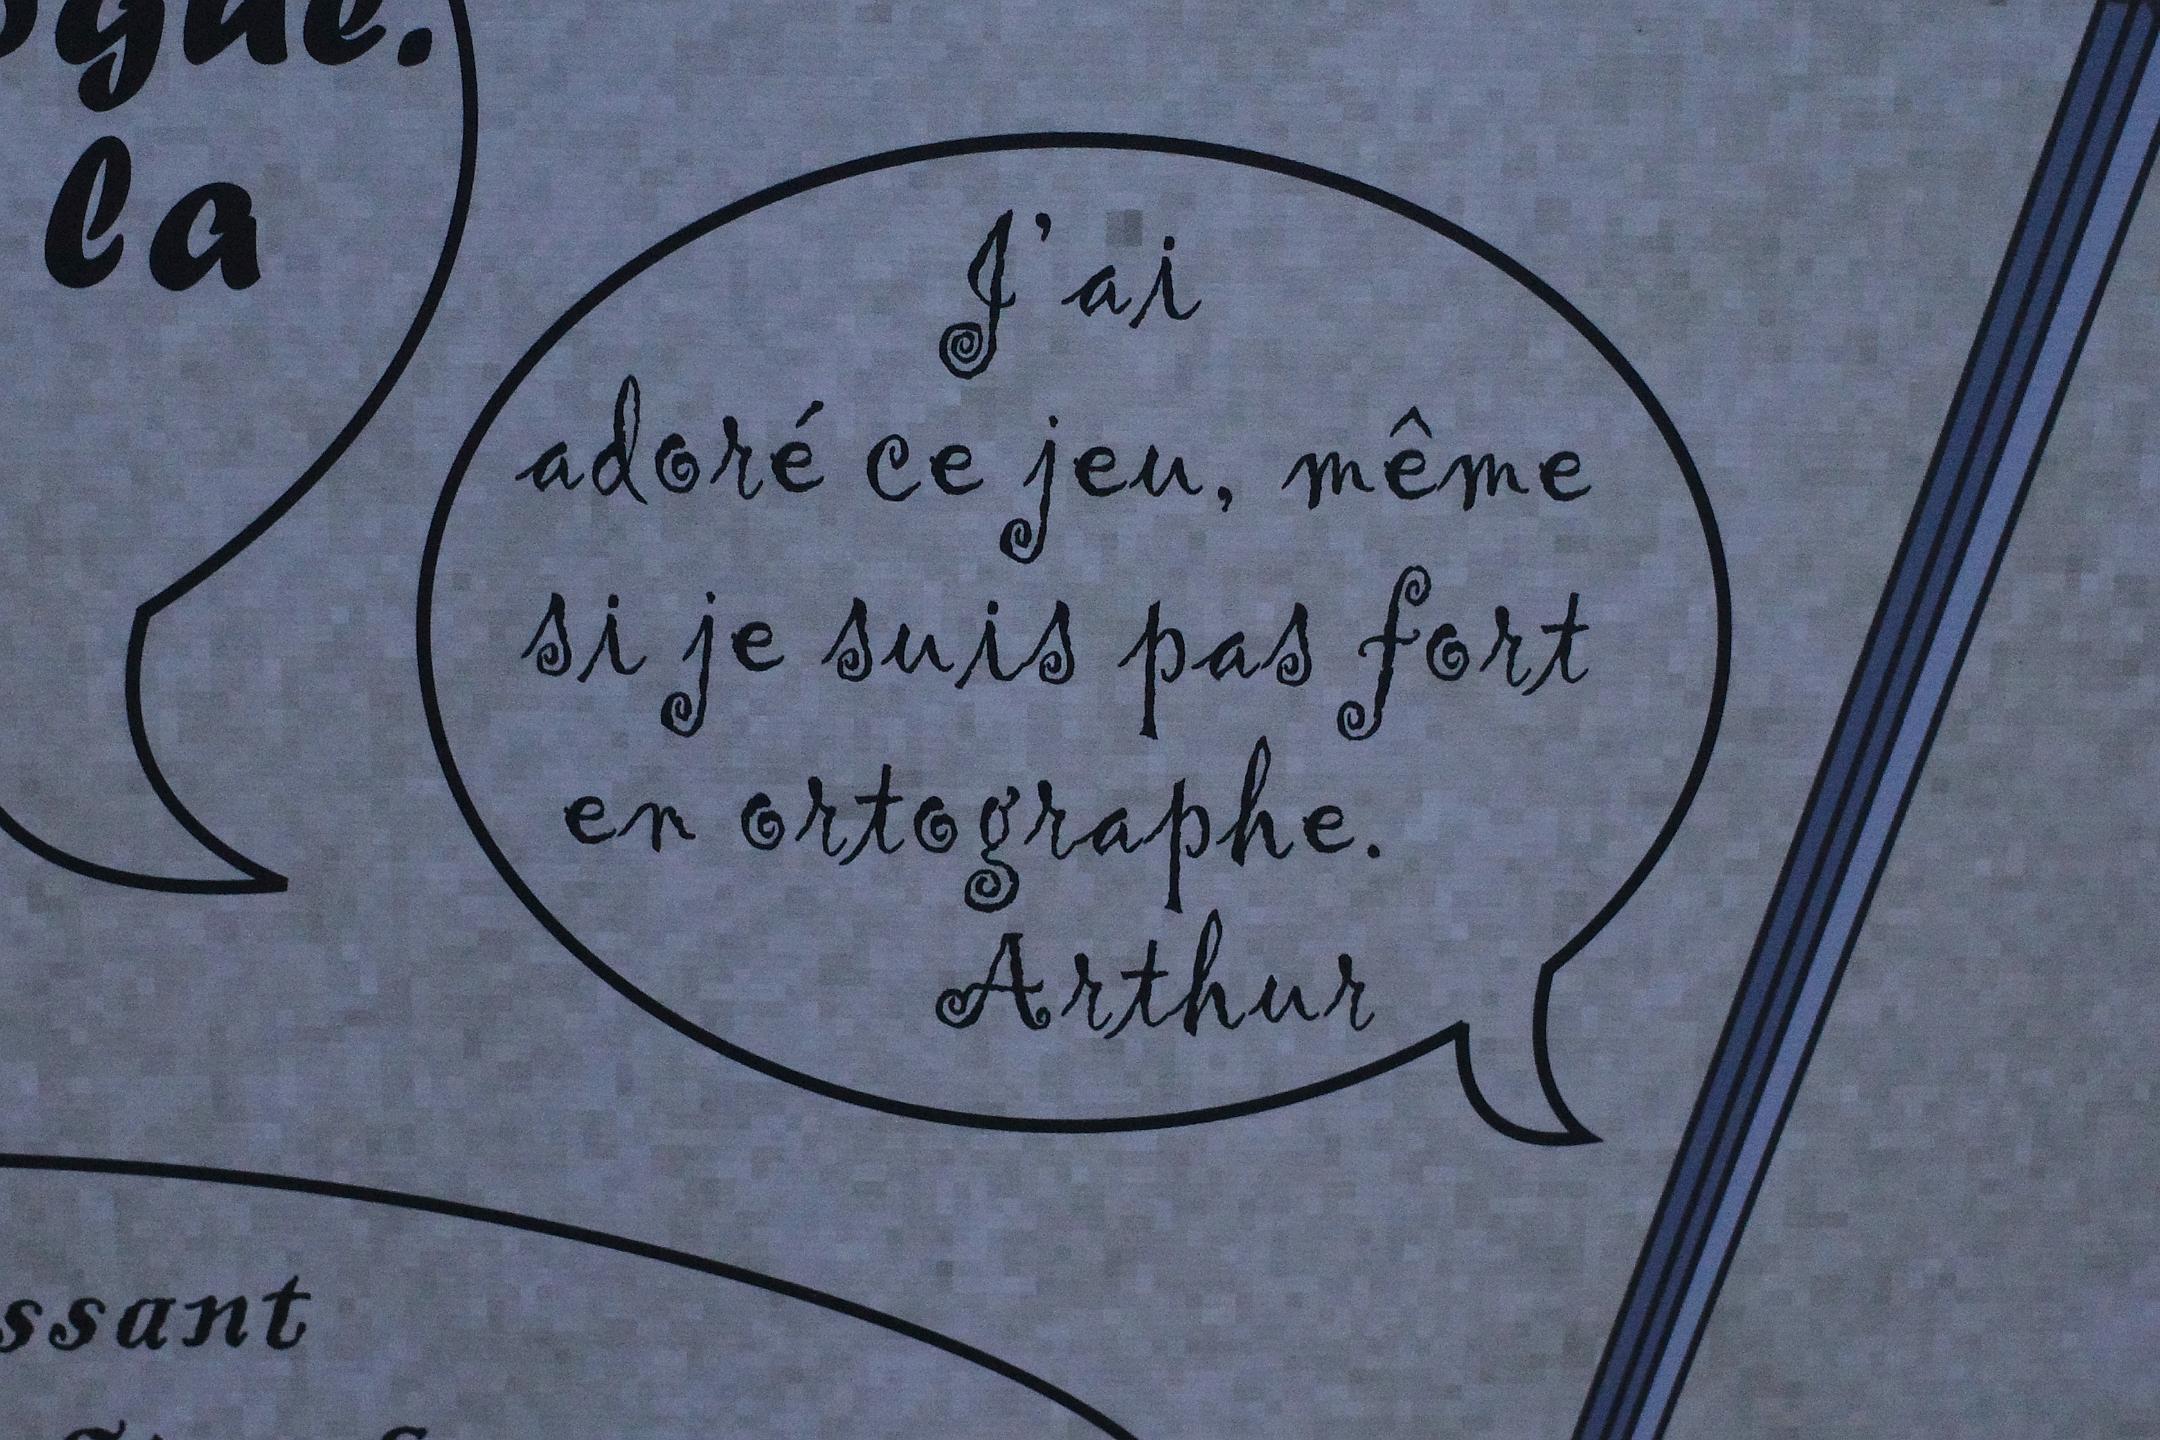 la
J'ai
adoré ce jeu, même
si je suis pas fort
en ortographe.
Arthur